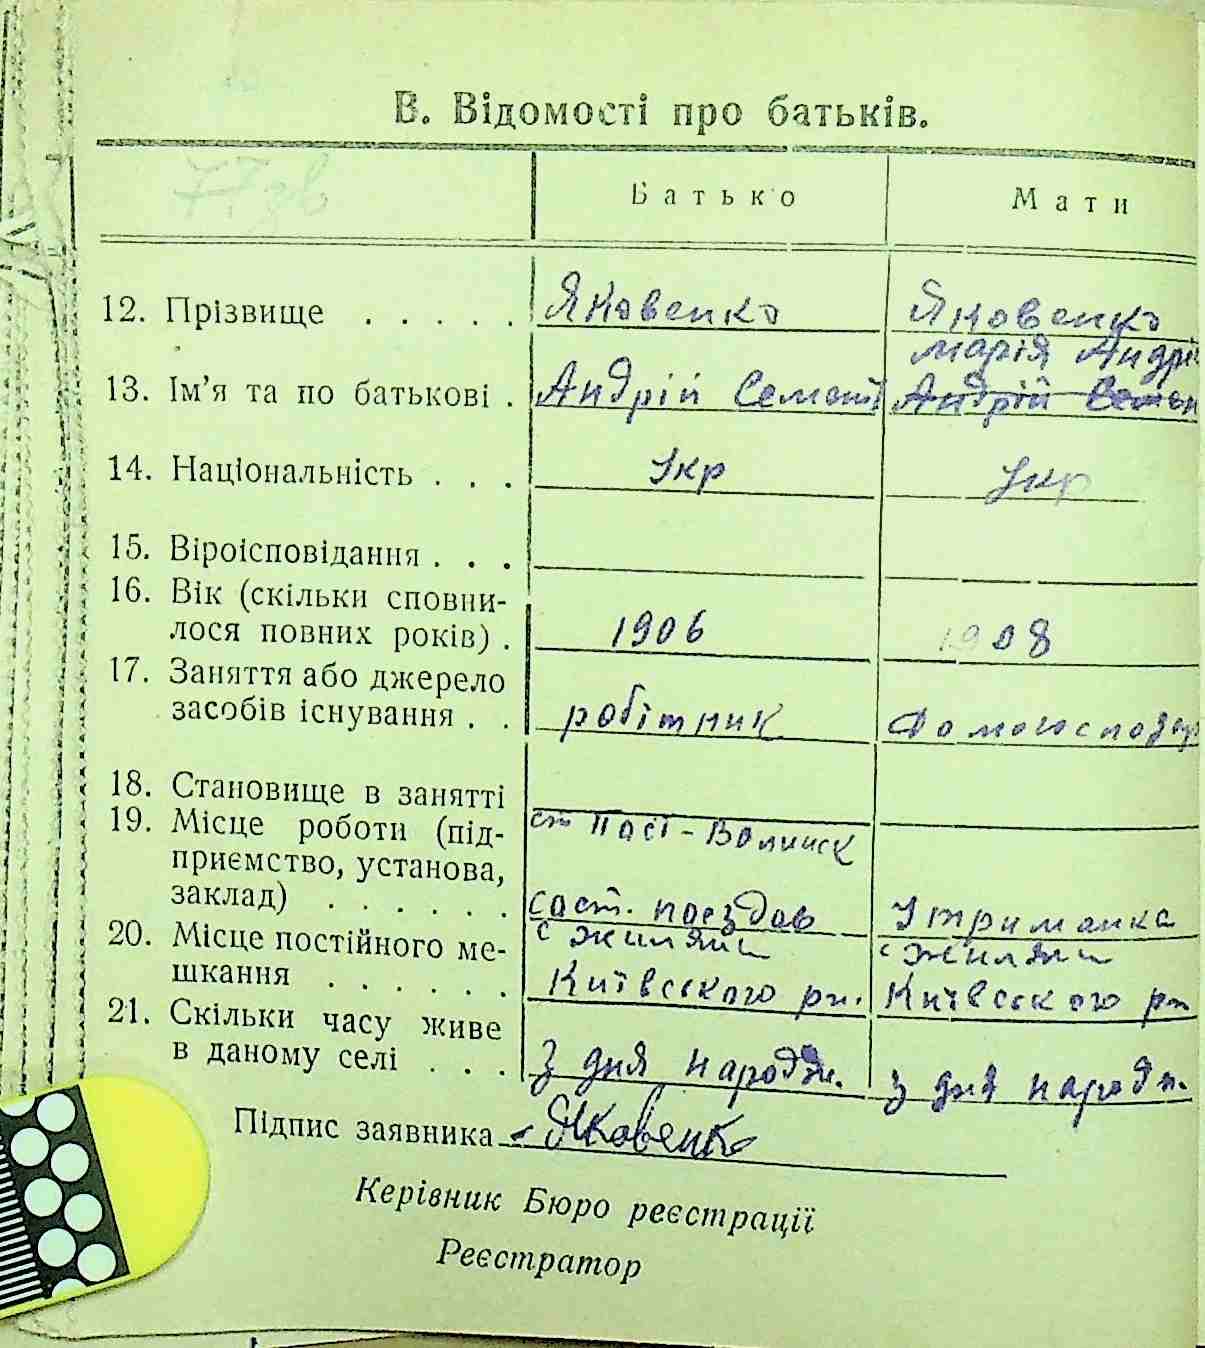 В. Відомості про батьків.
Батько Мати
12. Прізвище . . . . . Яковенко Яковенко
Марія Андрі
13. Ім'я та по батькові . Андрій Семен Андрій Семен
14. Національність . . . Укр Укр
15. Віроісповідання . . .
16. Вік (скільки сповни-
лося повних років) . 1906 1908
17. Заняття або джерело
засобів існування . . робітник Домогосподар
18. Становище в занятті
19. Місце роботи (під- ст Пост-Волинск
приємство, установа,
заклад) . . . . . . сост. поездов Утриманка
20. Місце постійного ме- с Жиляни с Жиляни
шкання . . . . . . Київського рн. Київського рн
21. Скільки часу живе
в даному селі . . . З дня народж. З дня народж.
Підпис заявника Яковенко
Керівник Бюро реєстрації
Реєстратор